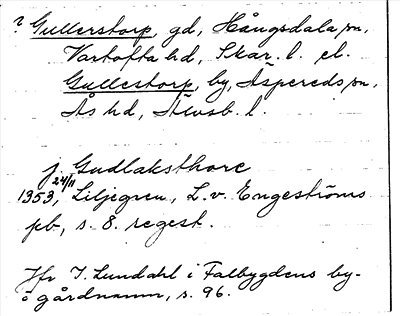 ? Gullerstorp, gd, Hångsdala sn,
Vartofta hd, Skar. l. el.
Gullestorp, by, Äspereds sn,
Ås hd, Älvsb. l.
j Gudlaksthorc
1353, 24/11 Liljegren, L. v. Engeströms
pb, s. 8. regest.
Jfr I. Lundahl i Falbygdens by-
o gårdnamn, s. 96.